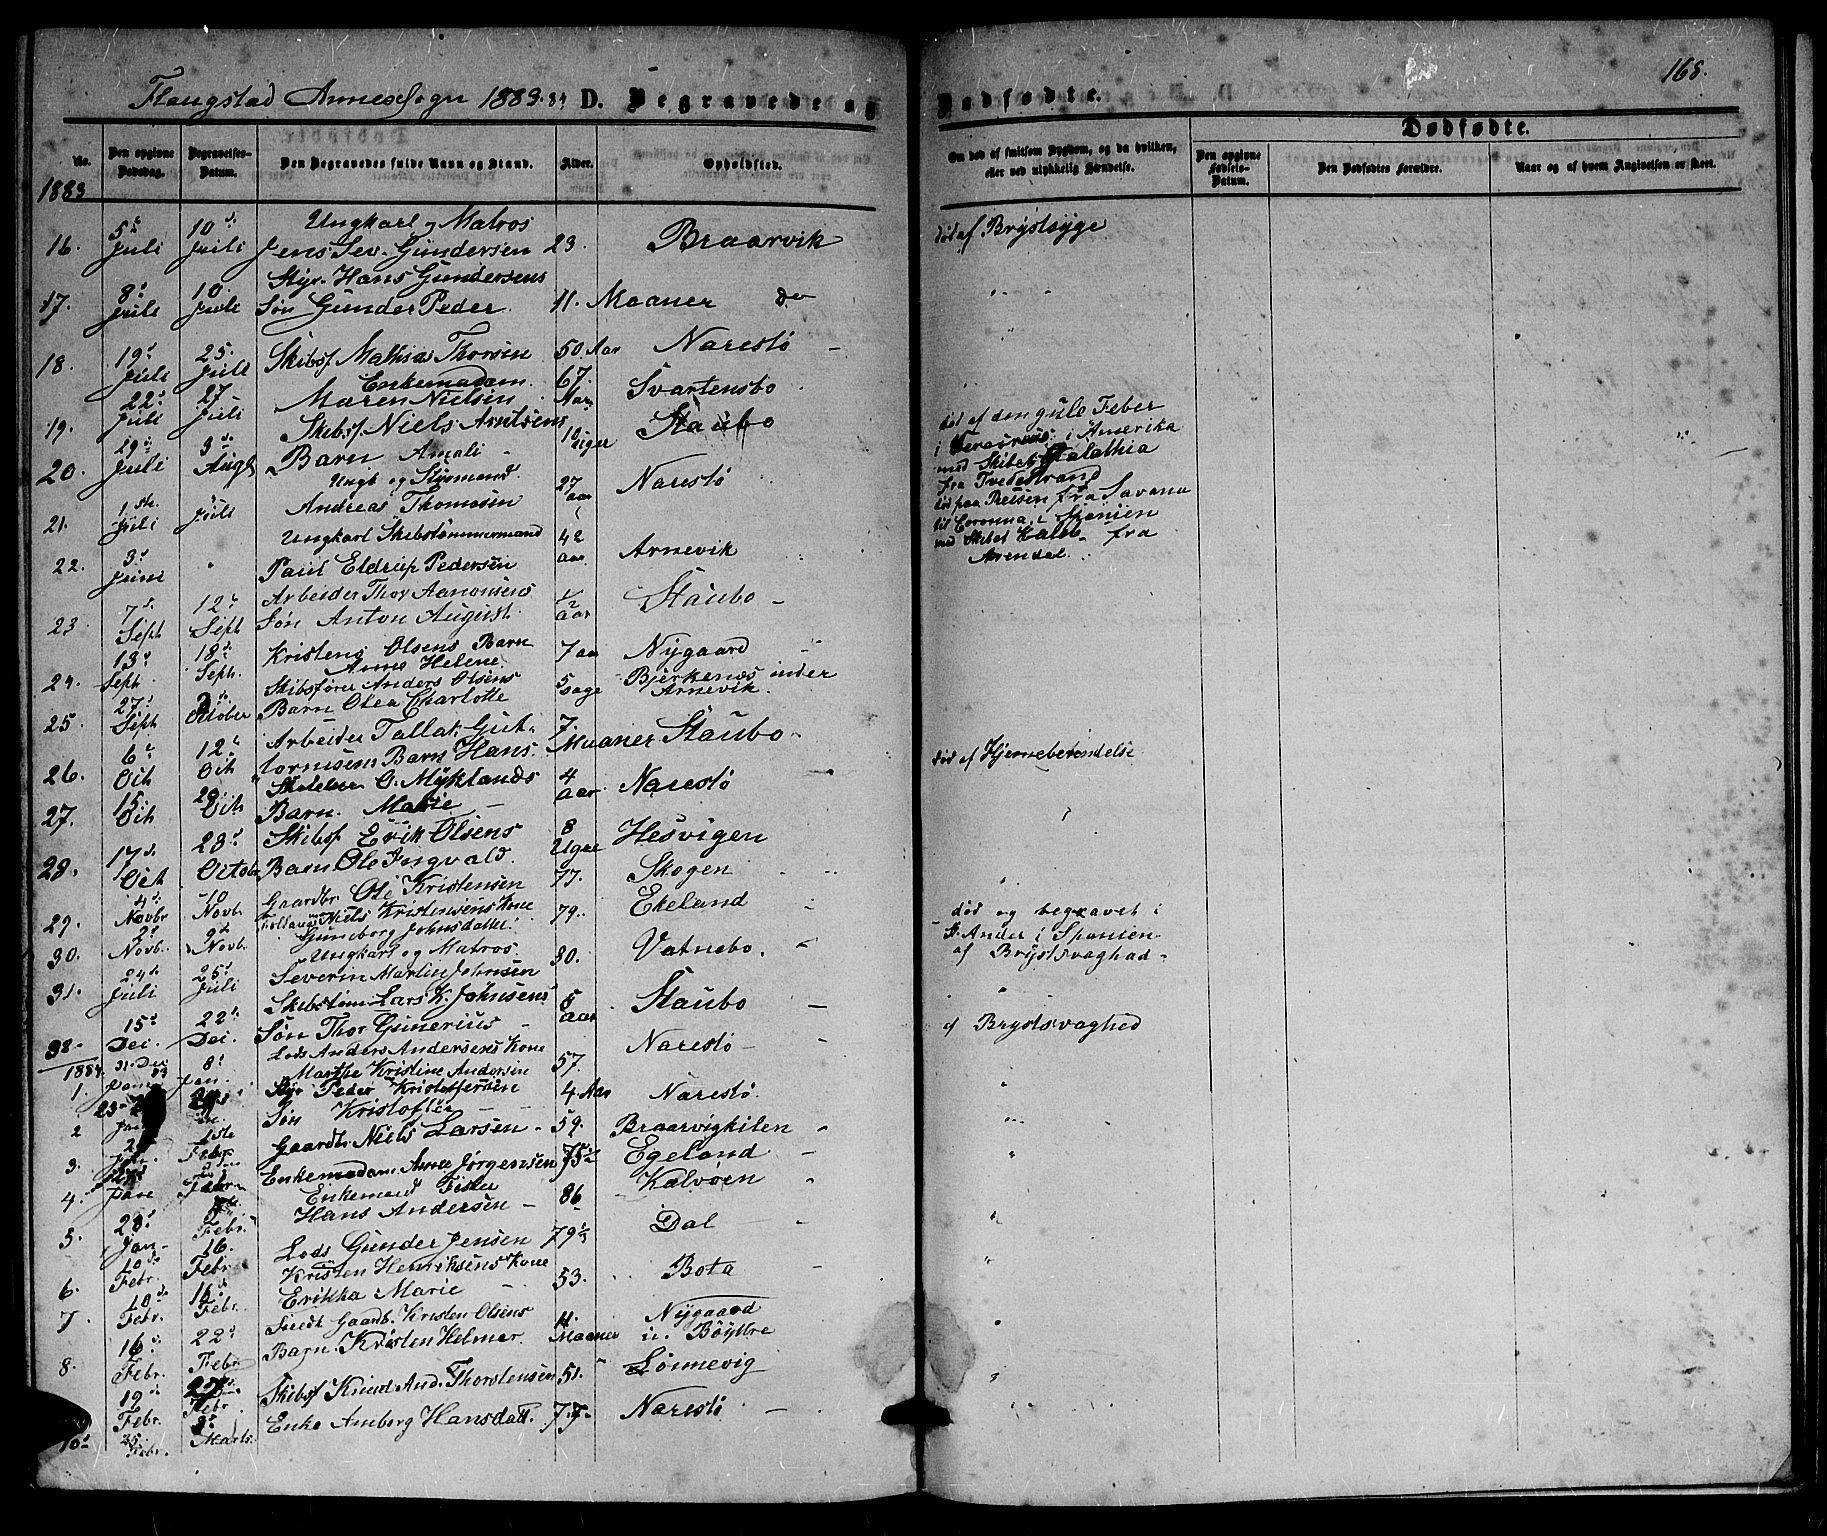 Flaugstad Annexsogn 1883-84 D. Begravede og Dødfødte.
168.
Dødfødte.
No.
Den opgivne Dødsdag.
Begravelses-Datum.
Den Begravedes fulde Navn og Stand.
Alder.
Opholdsted.
Om død af smitsom Sygdom, og da hvilken, eller ved ulykkelig Hændelse.
Den opgivne Fødsels-Datum.
Den Dødfødtes Forældre.
Naar og af hvem Angivelsen er skeet.
1883
Ungkarl og Matros
16. 5te Juli 10de Juli Jens Sev. Gundersen 23. Braarvik død af Brystsyge
Styr. Hans Gundersens
17. 8de Juli 10 Juli Søn Gunder Peder 11. Maaner Do
18. 19de Juli 25. Juli Skibsf. Mathias Thorsen 50 Aar Narestø
Enkemadam
19. 22de Juli 27 Juli Maren Nielsen 67. Aar Svartensbo
Skibsf. Niels Arntsens
20. 29de Juli 3de Augt Barn Amali 10 Uger Staubo
Ungk og Styrmand
21. 1ste Juli Juli Andreas Thomasen 27 aar Narestø
død af den gule Feber
i i Amerika
med Skibet Galathia
fra Tvedestrand
Ungkarl Skibstømmermand
22. 3de Juni " Paul Eldrup Pedersen 42 aar Arnevik
død paa Reisen fra Savana
til Coronna i Spanien
med Skibet fra
Arendal
Arbeider Thor Aanonsens
23 7de Sept 12te Sept Søn Anton August 1/2 aar Staubo
Kristens Olsens Barn
24. 13de Sept 18de Sept. Anne Helene 7 aar Nygaard
Skibsfører Anders Olsens
25. 27de Sept 2de October Barn Olea Charlotte 5 Dage Bjerkenes under Arnevik.
Arbeider Tallak Gut-
26. 6te Oct 12te Oct tormsens Barn Hans. 7. Maaner Staubo død af Hjernebetendelse
O. Myklands
27. 15 Oct 20 Oct Barn Marie 4 aar Narestø
Skibsf Erik Olsens
28. 17de Oct 23de October Barn Ole Ingvald. 8 Uger Hesvigen
29. 4de Novbr 10 Novb. Gaardbr Ole Kristensen 77. Skogen
Niels Kristensens Kone
30. 2de Novb. 9de Novb. Gunborg Johnsdatter 79. Ekeland
Ungkarl og Matros
31. 24de Juli 25de Juli Severin Martin Johnsen 30. Vatnebo.
død og begravet i
St. Ander i Spanien
af Brystsvaghed
Skibstøm Lars K. Johnsens
32. 15de Dec. 22de Dec. Søn Thor Gunerius 5 aar Staubo
1884
Lods Anders Andersens Kone
1. 31 Dec 83 8de Jan. Marthe Kristine Andersen 57. Narestø af Brystsvaghed
Styr Peder Kristoffersen
2 Søn Kristoffer 4 Aar Narestø.
3. 1ste Febr. Gaardbr Niels Larsen 59. Braarvigkilen
4. Enkemadam Anne Jørgensen 75 1/2 Egeland
Enkemand Fisker
5. 23de Jan Febr. Hans Andersen 86 Kalvøen
6. 10de Febr. 16. Febr Lods Gunder Jensen 79 1/3 Dal
Kristen Henriksens Kone
7. 10de Febr. 16de Febr. Erikka Marie 53. Bota
Gaardb. Kristen Olsens
8. 16de Febr. 22de Febr Barn Kristen Helmer. 11. Maaner Nygaard u. Bøylte
19de Febr. 27de Febr. Skibsf Knud And. Thorstensen 51. Lønnevig
10de 25. Febr. 3de Marts. Enke Amborg Hansdatt. 77. Narestø